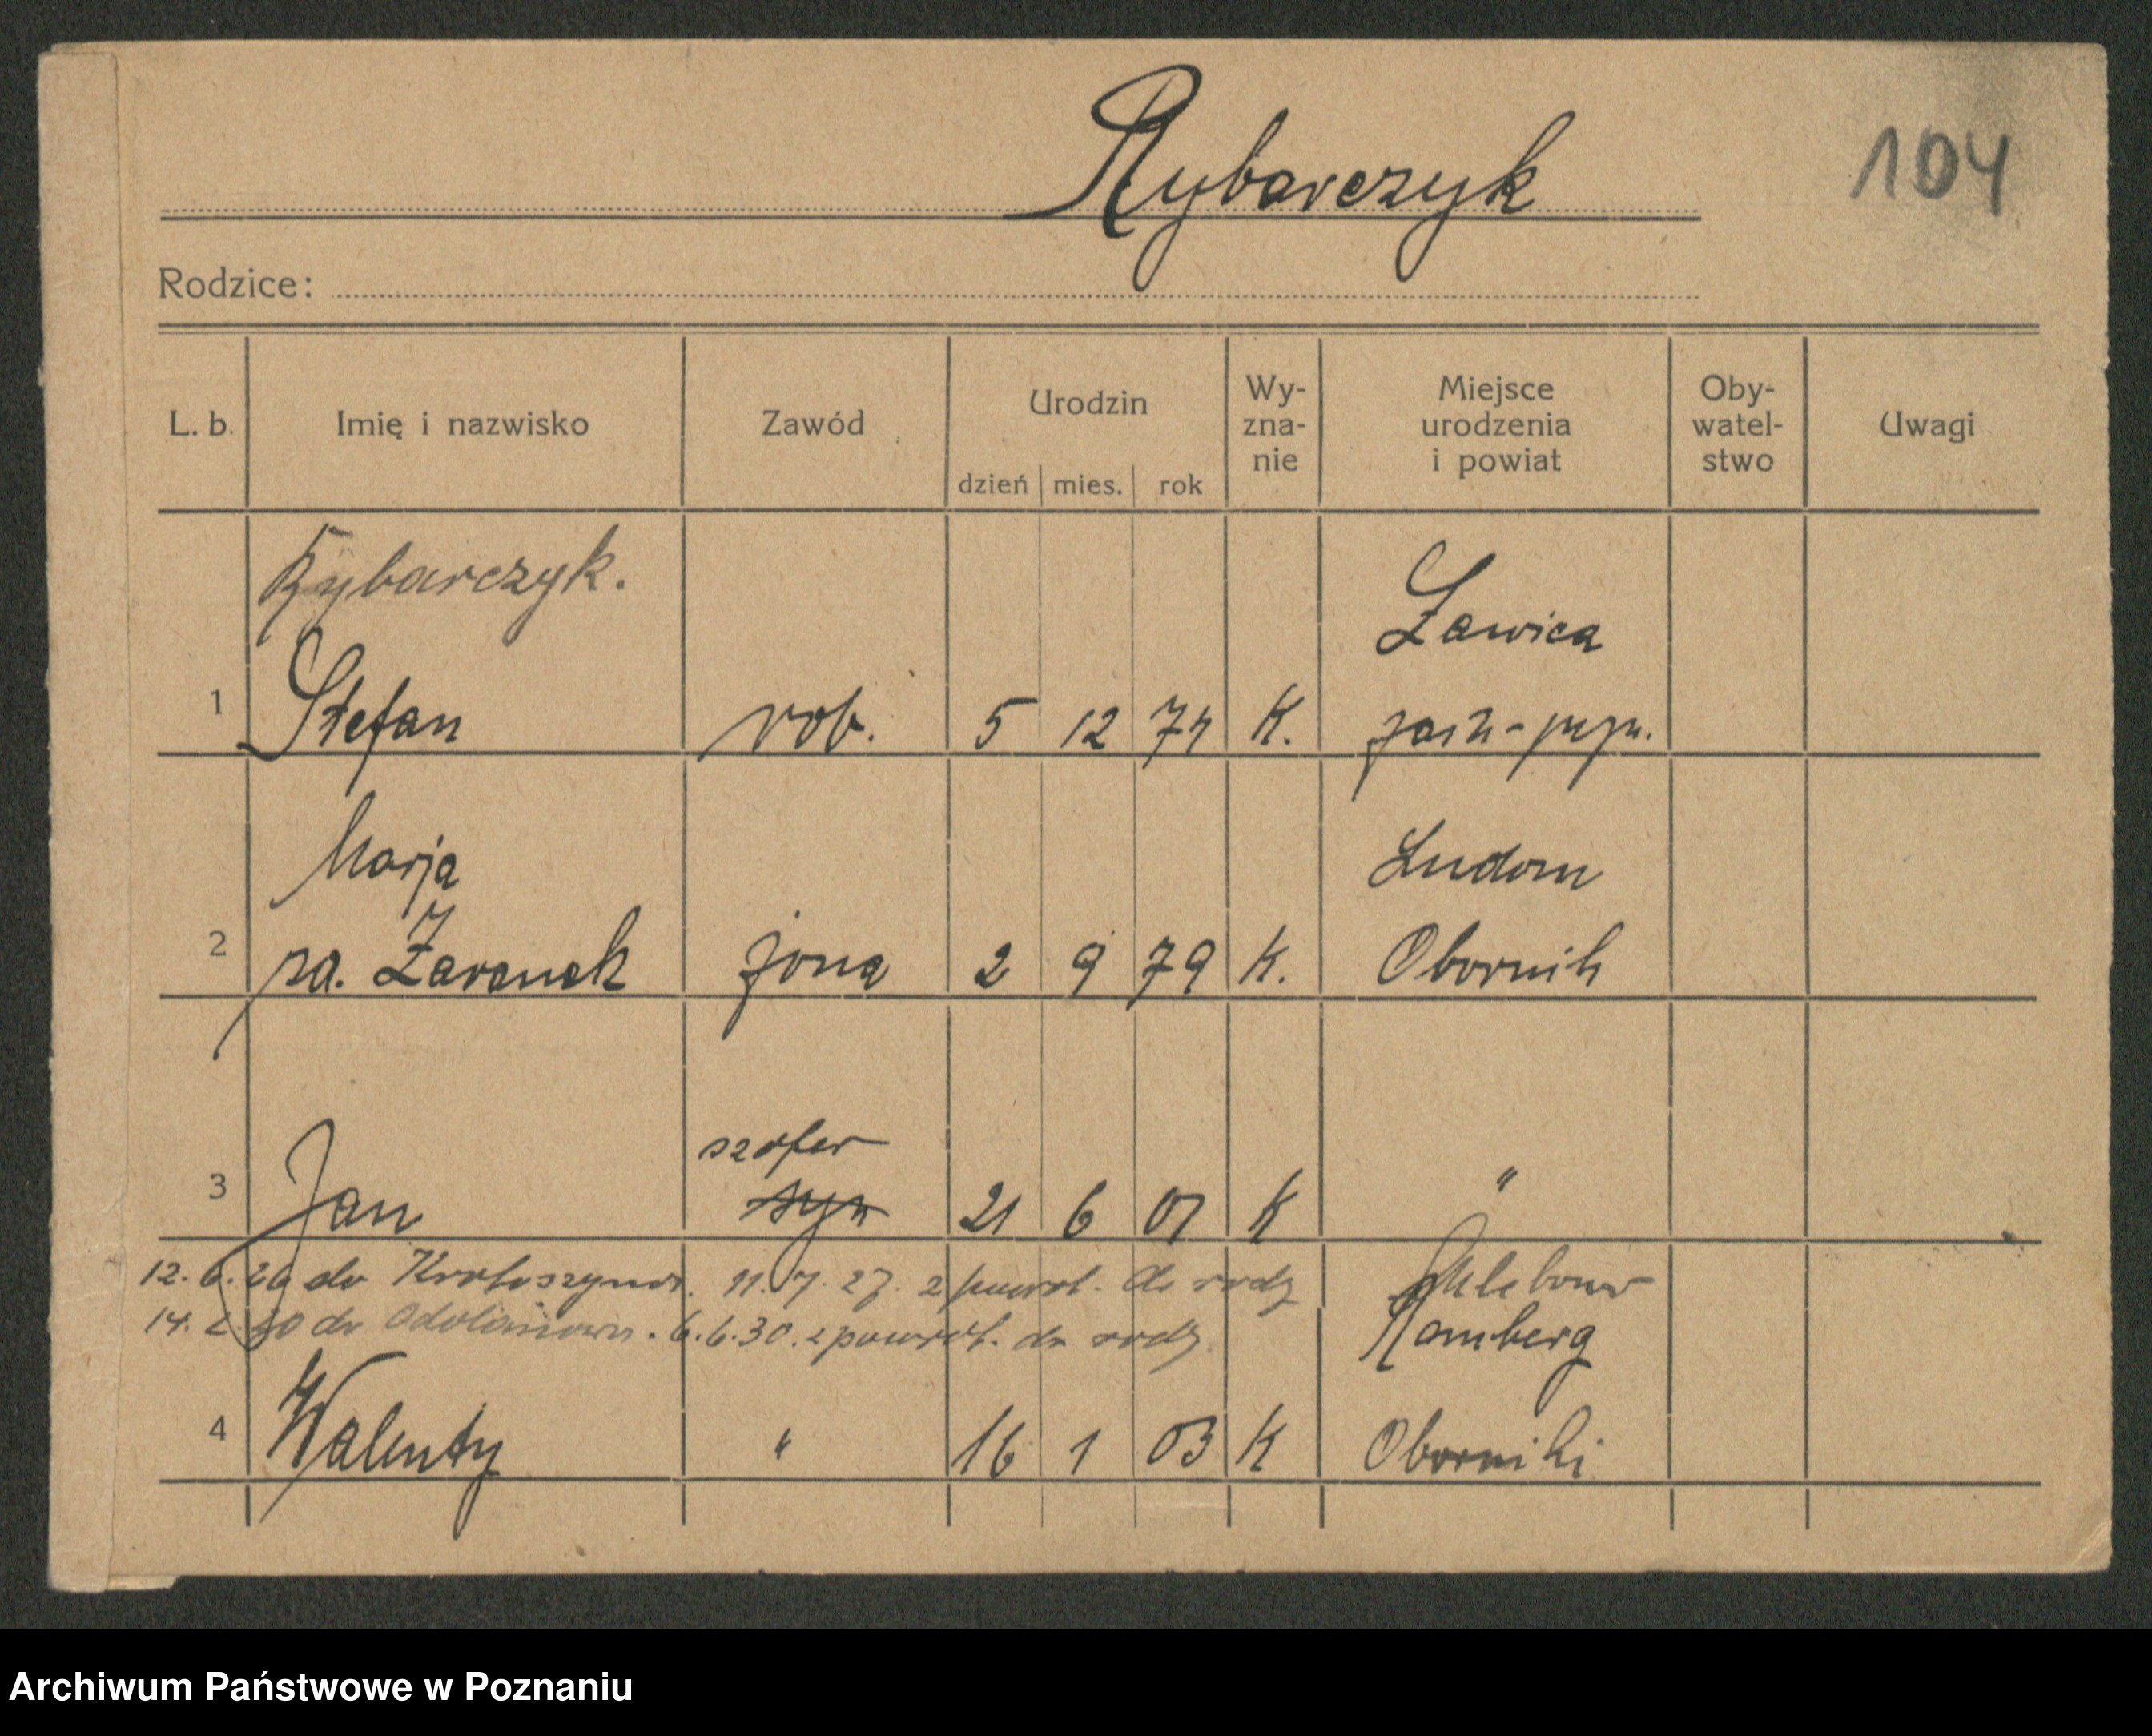 Rybarczyk
104
Rodzice:
L. b. Imię i nazwisko Zawód Urodzin dzień mies. rok Wy-zna-nie Miejsce urodzenia i powiat Oby-watel-stwo Uwagi
Rybarczyk.
Ławica
1 Stefan rob. 5 12 74 K.
Marja
Ludom
2 Żaranek żona 2 9 79 K. Obornik
szofer
3 Jan syn 21 6 01 K "
12. 6. 26 do Krotoszyna. 11. 7. 27. z powrot. do rodz
14. 2. 30 do Odolanowa. 6. 6. 30. z powrot. do rodz.
Ramberg
4 Walenty " 16 1 03 K Oborniki
Archiwum Państwowe w Poznaniu